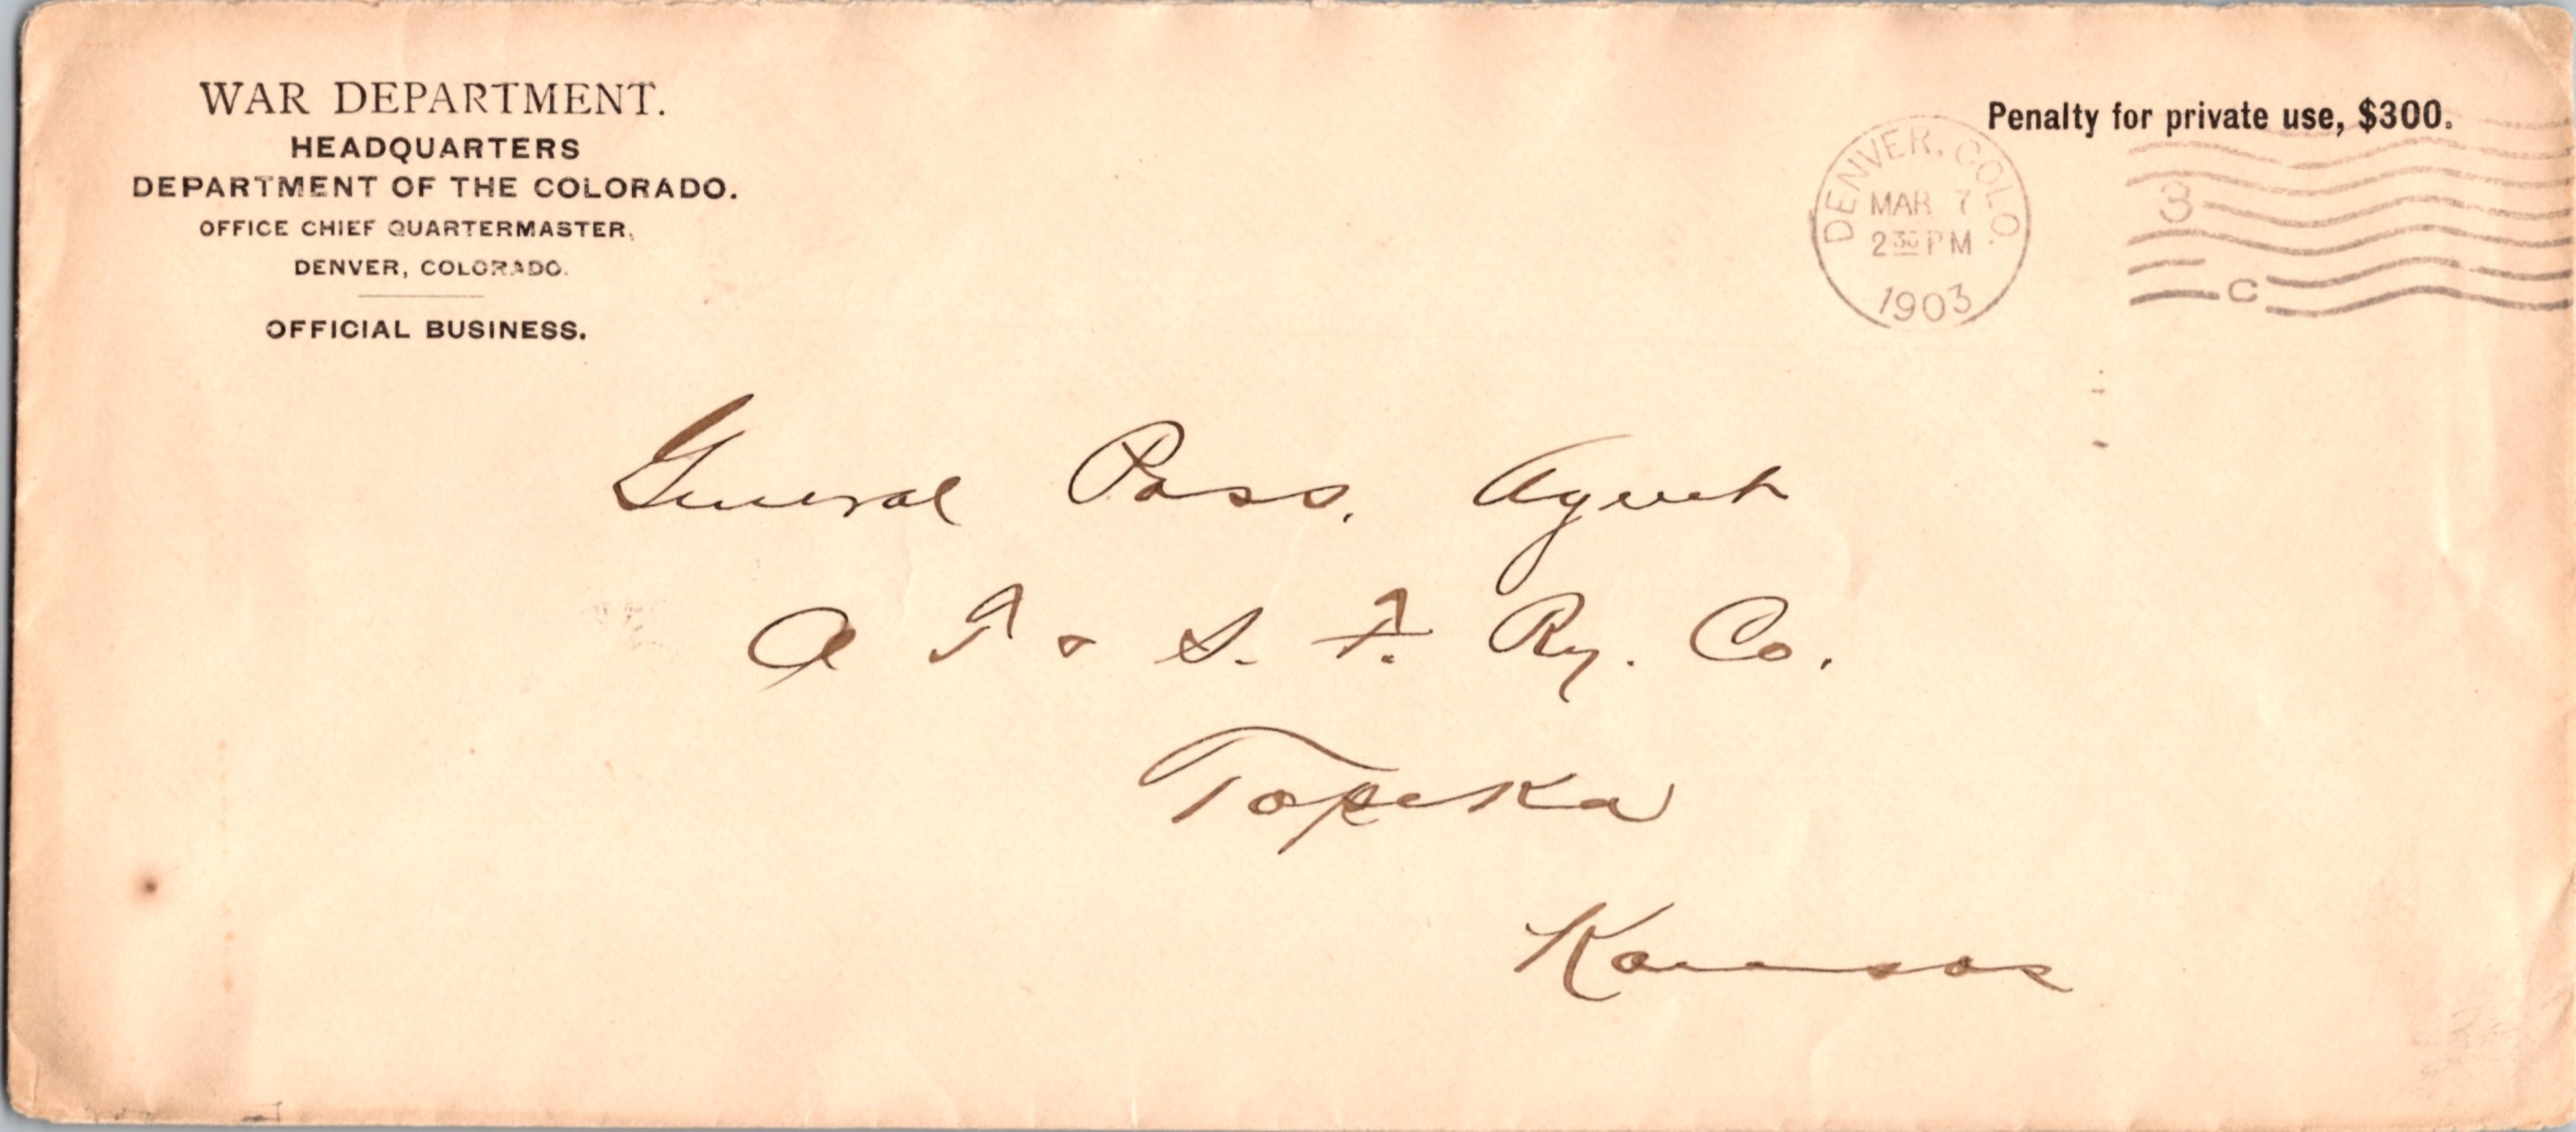 WAR DEPARTMENT.
HEADQUARTERS
DEPARTMENT OF THE COLORADO.
OFFICE CHIEF QUARTERMASTER,
DENVER, COLORADO.
OFFICIAL BUSINESS.
Penalty for private use, $300.
DENVER, COLO.
MAR 7
2 30 PM
1903
3
C
General Pass. Agent
A T & S. F. Ry. Co.
Topeka
Kansas